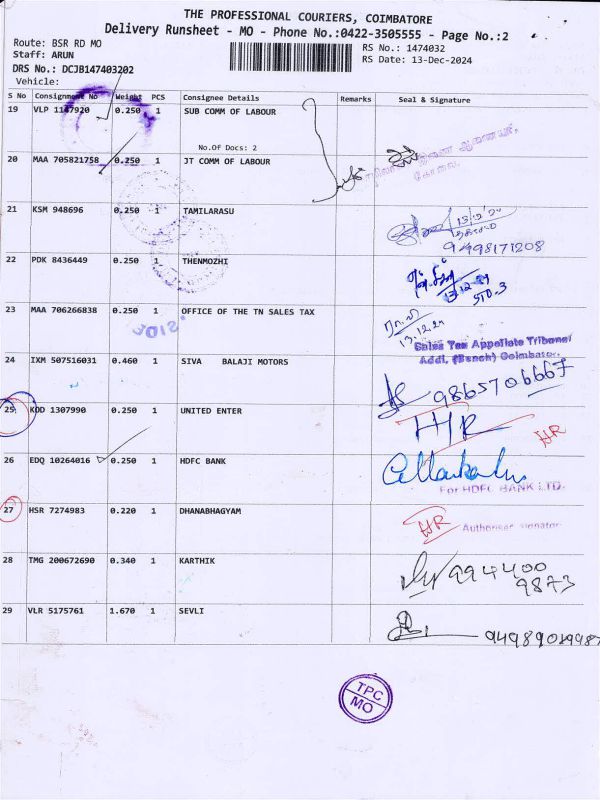 THE PROFESSIONAL COURIERS, COIMBATORE
Delivery Runsheet - MO - Phone No.:0422-3505555 - Page No.:2
Route: BSR RD MO
Staff: ARUN
DRS No.: DCJB147403202
Vehicle:
RS No.: 1474032
RS Date: 13-Dec-2024
S No Consignment No Weight PCS Consignee Details Remarks Seal & Signature
19 VLP 1147920 0.250 1 SUB COMM OF LABOUR
No.Of Docs: 2
20 MAA 705821758 0.250 1 JT COMM OF LABOUR
21 KSM 948696 0.250 1 TAMILARASU
9498171208
22 PDK 8436449 0.250 1 THENMOZHI
13.12.24
STD.3
23 MAA 706266838 0.250 1 OFFICE OF THE TN SALES TAX
13.12.24
Sales Tax Appellate Tribunal
Addl. (Bench) Coimbatore.
24 IXM 507516031 0.460 1 SIVA BALAJI MOTORS
9865706667
25 KOD 1307990 0.250 1 UNITED ENTER
HR
HR
26 EDQ 10264016 0.250 1 HDFC BANK
For HDFC BANK LTD.
27 HSR 7274983 0.220 1 DHANABHAGYAM
HR
Authorised Signatory
28 TMG 200672690 0.340 1 KARTHIK
994400
9873
29 VLR 5175761 1.670 1 SEVLI
TPC
MO